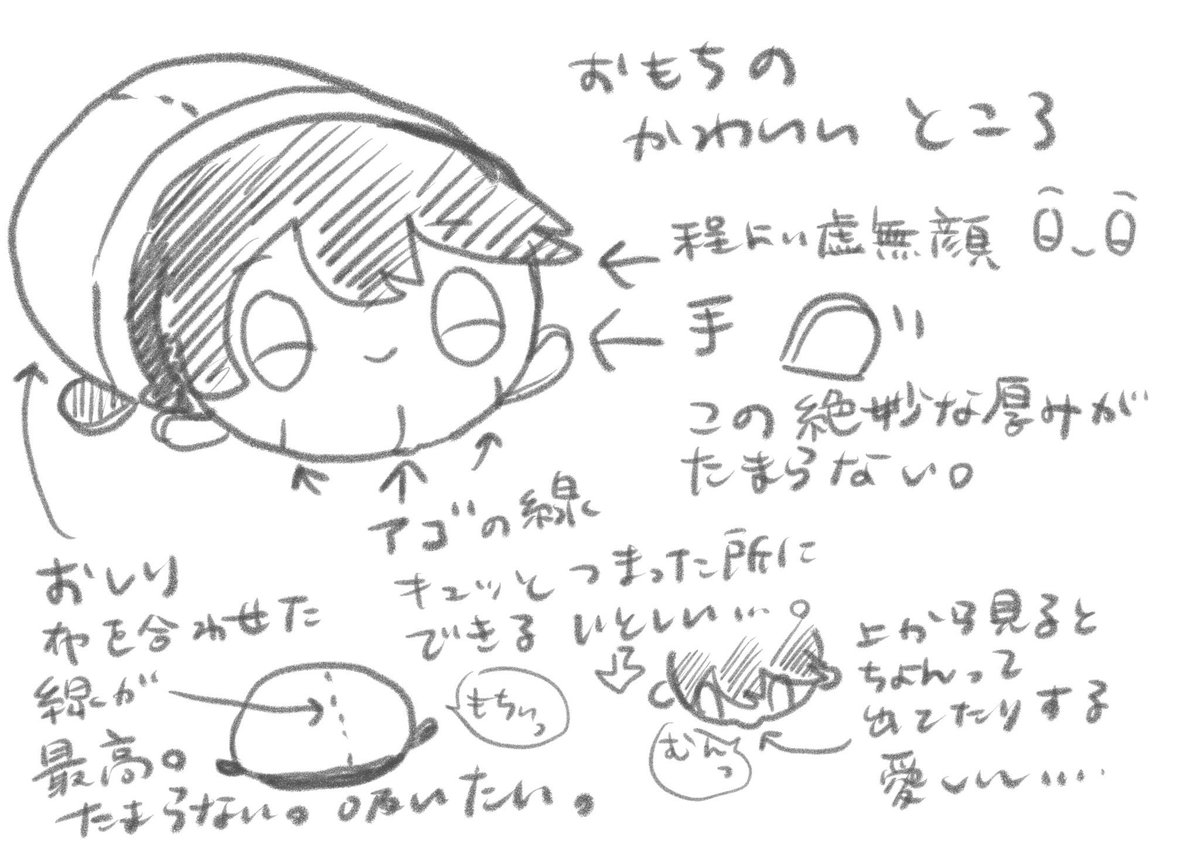 おもちの
かわいい ところ
程よい虚無顔
手
この絶妙な厚みが
たまらない。
アゴの線
キュッと つまった所に
できる いとしい…。
おしり
布を合わせた
線が
最高。
たまらない。吸いたい。
もちぃっ
むんっ
上から見ると
ちょんって
出てたりする
愛しい……